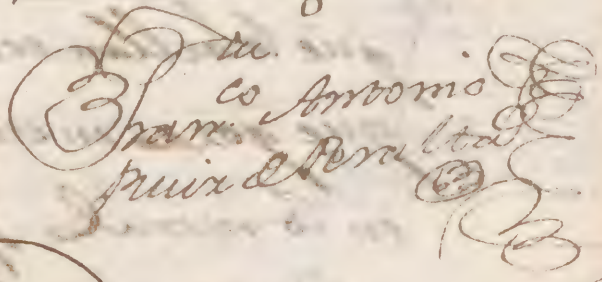 Fran.co Antonio
Ruiz de Peralta